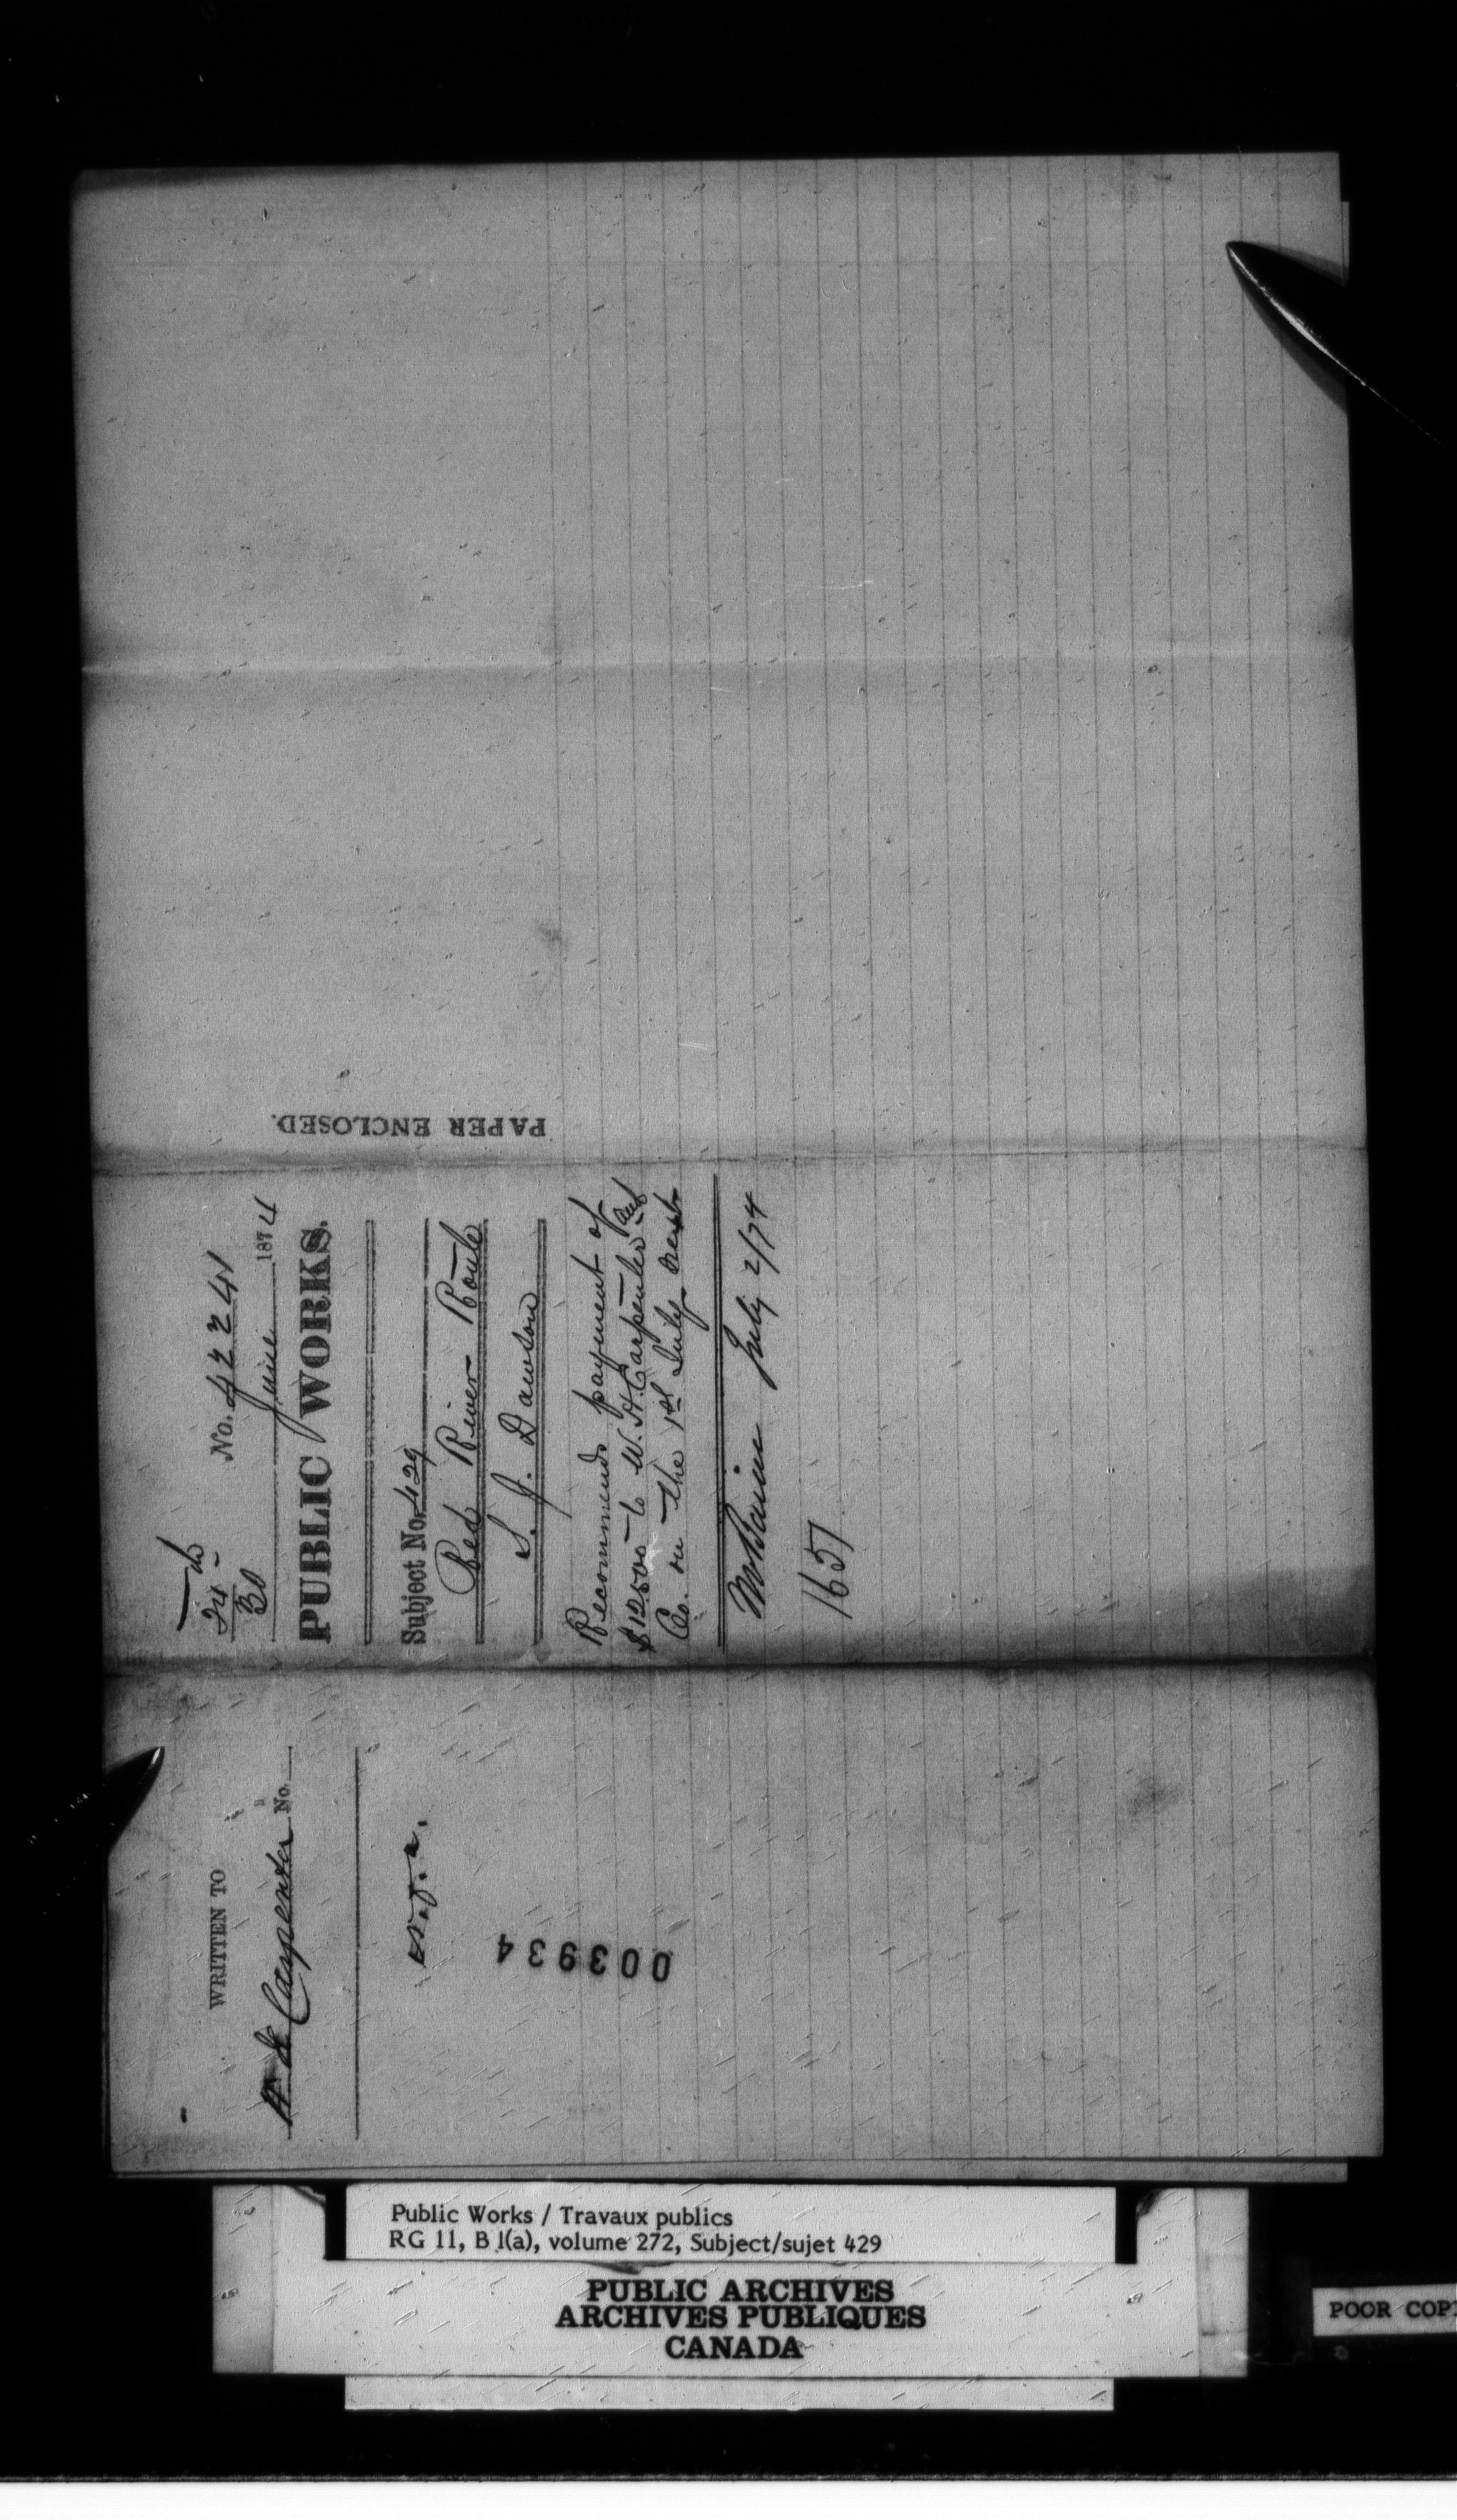 24
30
No. 42241
June 1874
PUBLIC WORKS.
Subject No. 429
Red River Route
S. J. Dawson
Recommends payment of
$12500 to W. H. Carpenter and
Co. on the 1st July next
July 2/74
1651
PAPER ENCLOSED.
WRITTEN TO
W H Carpenter No.
003934
Public Works / Travaux publics
RG 11, B 1(a), volume 272, Subject/sujet 429
PUBLIC ARCHIVES
ARCHIVES PUBLIQUES
CANADA
POOR COP